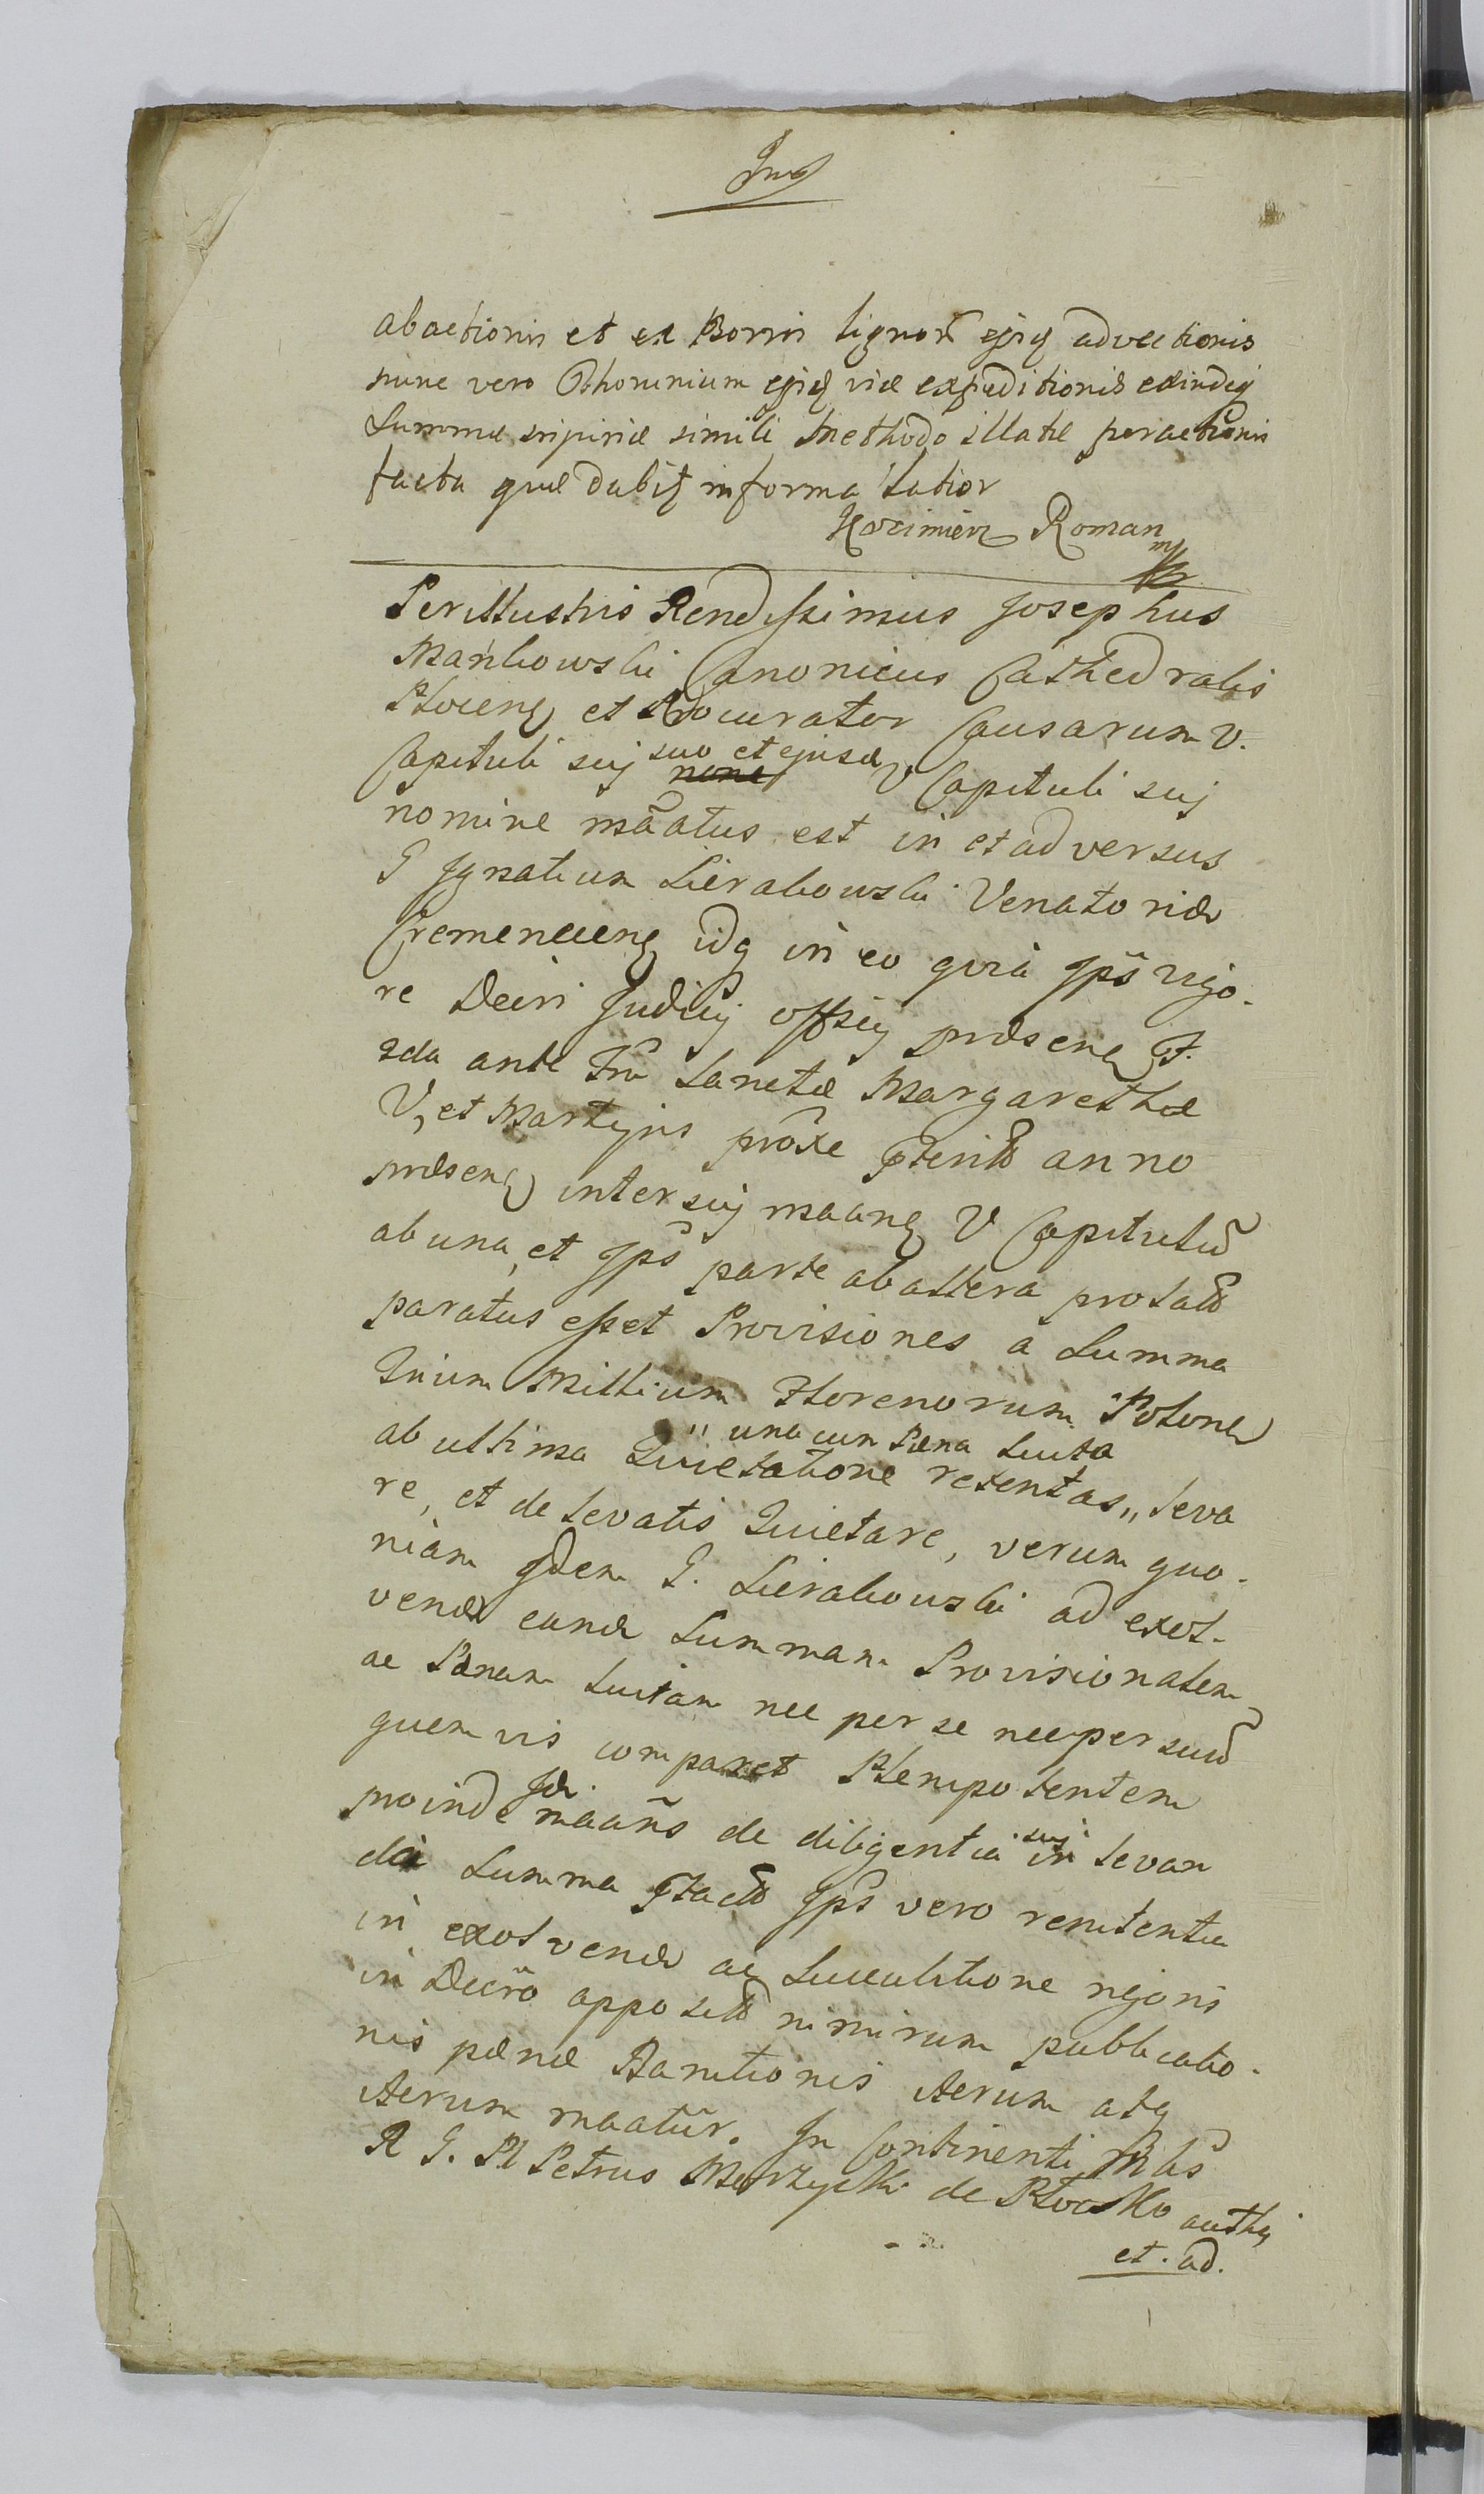 abactionis et ex Borris lignor ejsq advectionis
nunc vero Othominium ejsq viæ expeditionis exindeq
Summæ simili Methodo illatæ peractionis
facta quæ dabit in forma latior
Kazimierz Roman
mp
Perillustris Rendissimus Josephus
Mańkowski Canonicus Cathedralis
Plocens et Procurator Causarum V.
Capituli suj suo et ejusd V Capituli suj
nomine mãatus est in et adversus
G Ignatium Sierakowski Venatorid
Cremeneens idq in eo quia Ips rigo-
re Decri Judicij officij præsens F.
zda ante Fm Sanctæ Margarethæ
V, et Martyris proxe Pterito anno
præsens inter suj maans V Capitulu
ab una, et Ips parte ab altera prolato
paratus esset Provisiones a Summa
Trium Millium Florenorum Polona
ab ultima Quietatione retentas „ leva
" una cum Pæna Luita
re, et de levatis Quietare, verum quo-
niam Idem G. Sierakowski ad exol-
vend eand Summam Provisionalem
ac Pænam Luitam nec per se nec per suu
quemvis comparet Plenipotentem
proinde Id. maans de diligentia suj in levan
da Summa Ptacto Ips vero renitentia
in exolvendo ac Luculitione rigoris
in Decro apposito nimirum publicatio-
nis pænæ Banitionis iterum atq
iterum maatur. In Continenti Mlis
R G. Pl Petrus Marzycki de Plocsko auths
et. ad.